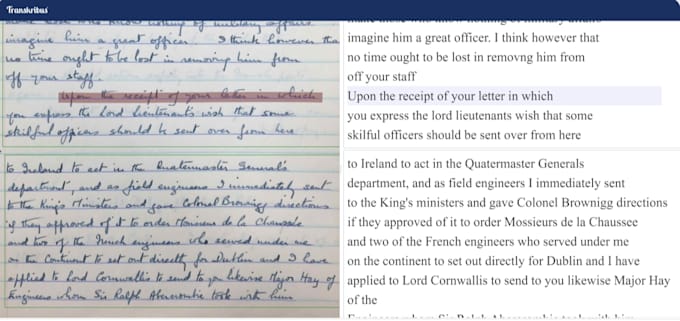 Transkribus
who know nothing of military affairs
imagine him a great officer. I think however tha
no time ought to be lost in removing him from
off your staff.
Upon the receipt of your letter in which
you express the Lord Lieutenant's wish that some
skilful officers should be sent over from here
to Ireland to act in the Quatermaster General's
department, and as field engineers I immediately sent
to the King's Ministers and gave Colonel Brownigg directions
if they approved of it to order Monsieur de la Chaussée
and two of the French engineers who served under me
on the Continent to set out directly for Dublin and I have
applied to Lord Cornwallis to send to you likewise Major Hay of
Engineers whom Sir Ralph Abercrombie took with him
imagine him a great officer. I think however that
no time ought to be lost in removng him from
off your staff
Upon the receipt of your letter in which
you express the lord lieutenants wish that some
skilful officers should be sent over from here
to Ireland to act in the Quatermaster Generals
department, and as field engineers I immediately sent
to the King's ministers and gave Colonel Brownigg directions
if they approved of it to order Mossieurs de la Chaussee
and two of the French engineers who served under me
on the continent to set out directly for Dublin and I have
applied to Lord Cornwallis to send to you likewise Major Hay
of the